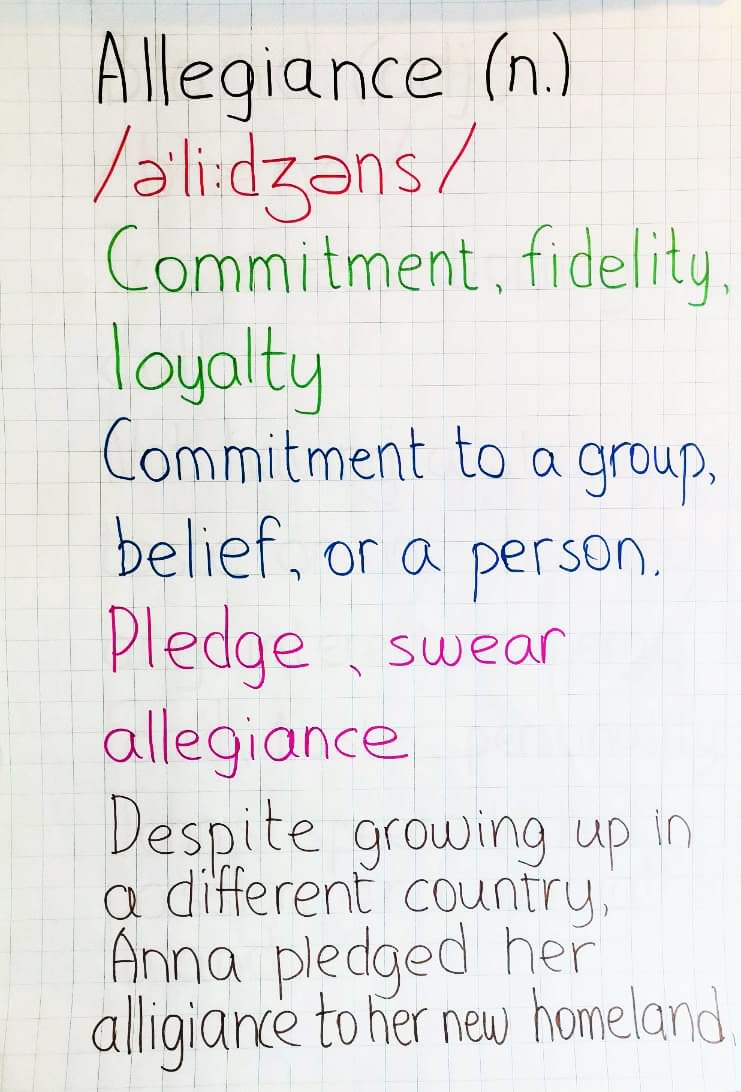 Allegiance (n.)
/ə'li:dʒəns/
Commitment, fidelity,
loyalty
Commitment to a group,
belief, or a person.
Pledge, swear
allegiance
Despite growing up in
a different country,
Anna pledged her
alligiance to her new homeland.